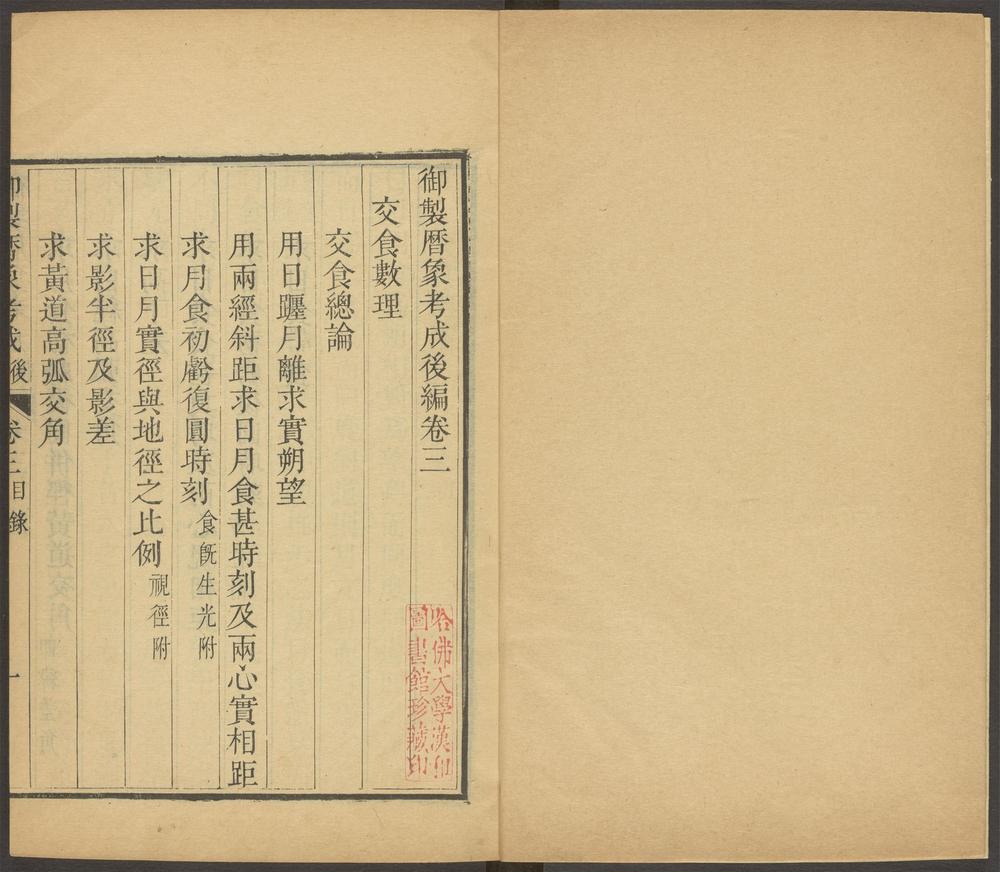 御製曆象考成後編卷三
交食數理
交食總論
用日躔月離求實朔望
用兩經斜距求日月食甚時刻及兩心實相距
求月食初虧復圓時刻 食旣生光附
求日月實徑與地徑之比例 視徑附
求影半徑及影差
求黃道高弧交角
御製曆象考成後 卷三目錄 一
哈佛大學漢和
圖書館珍藏印